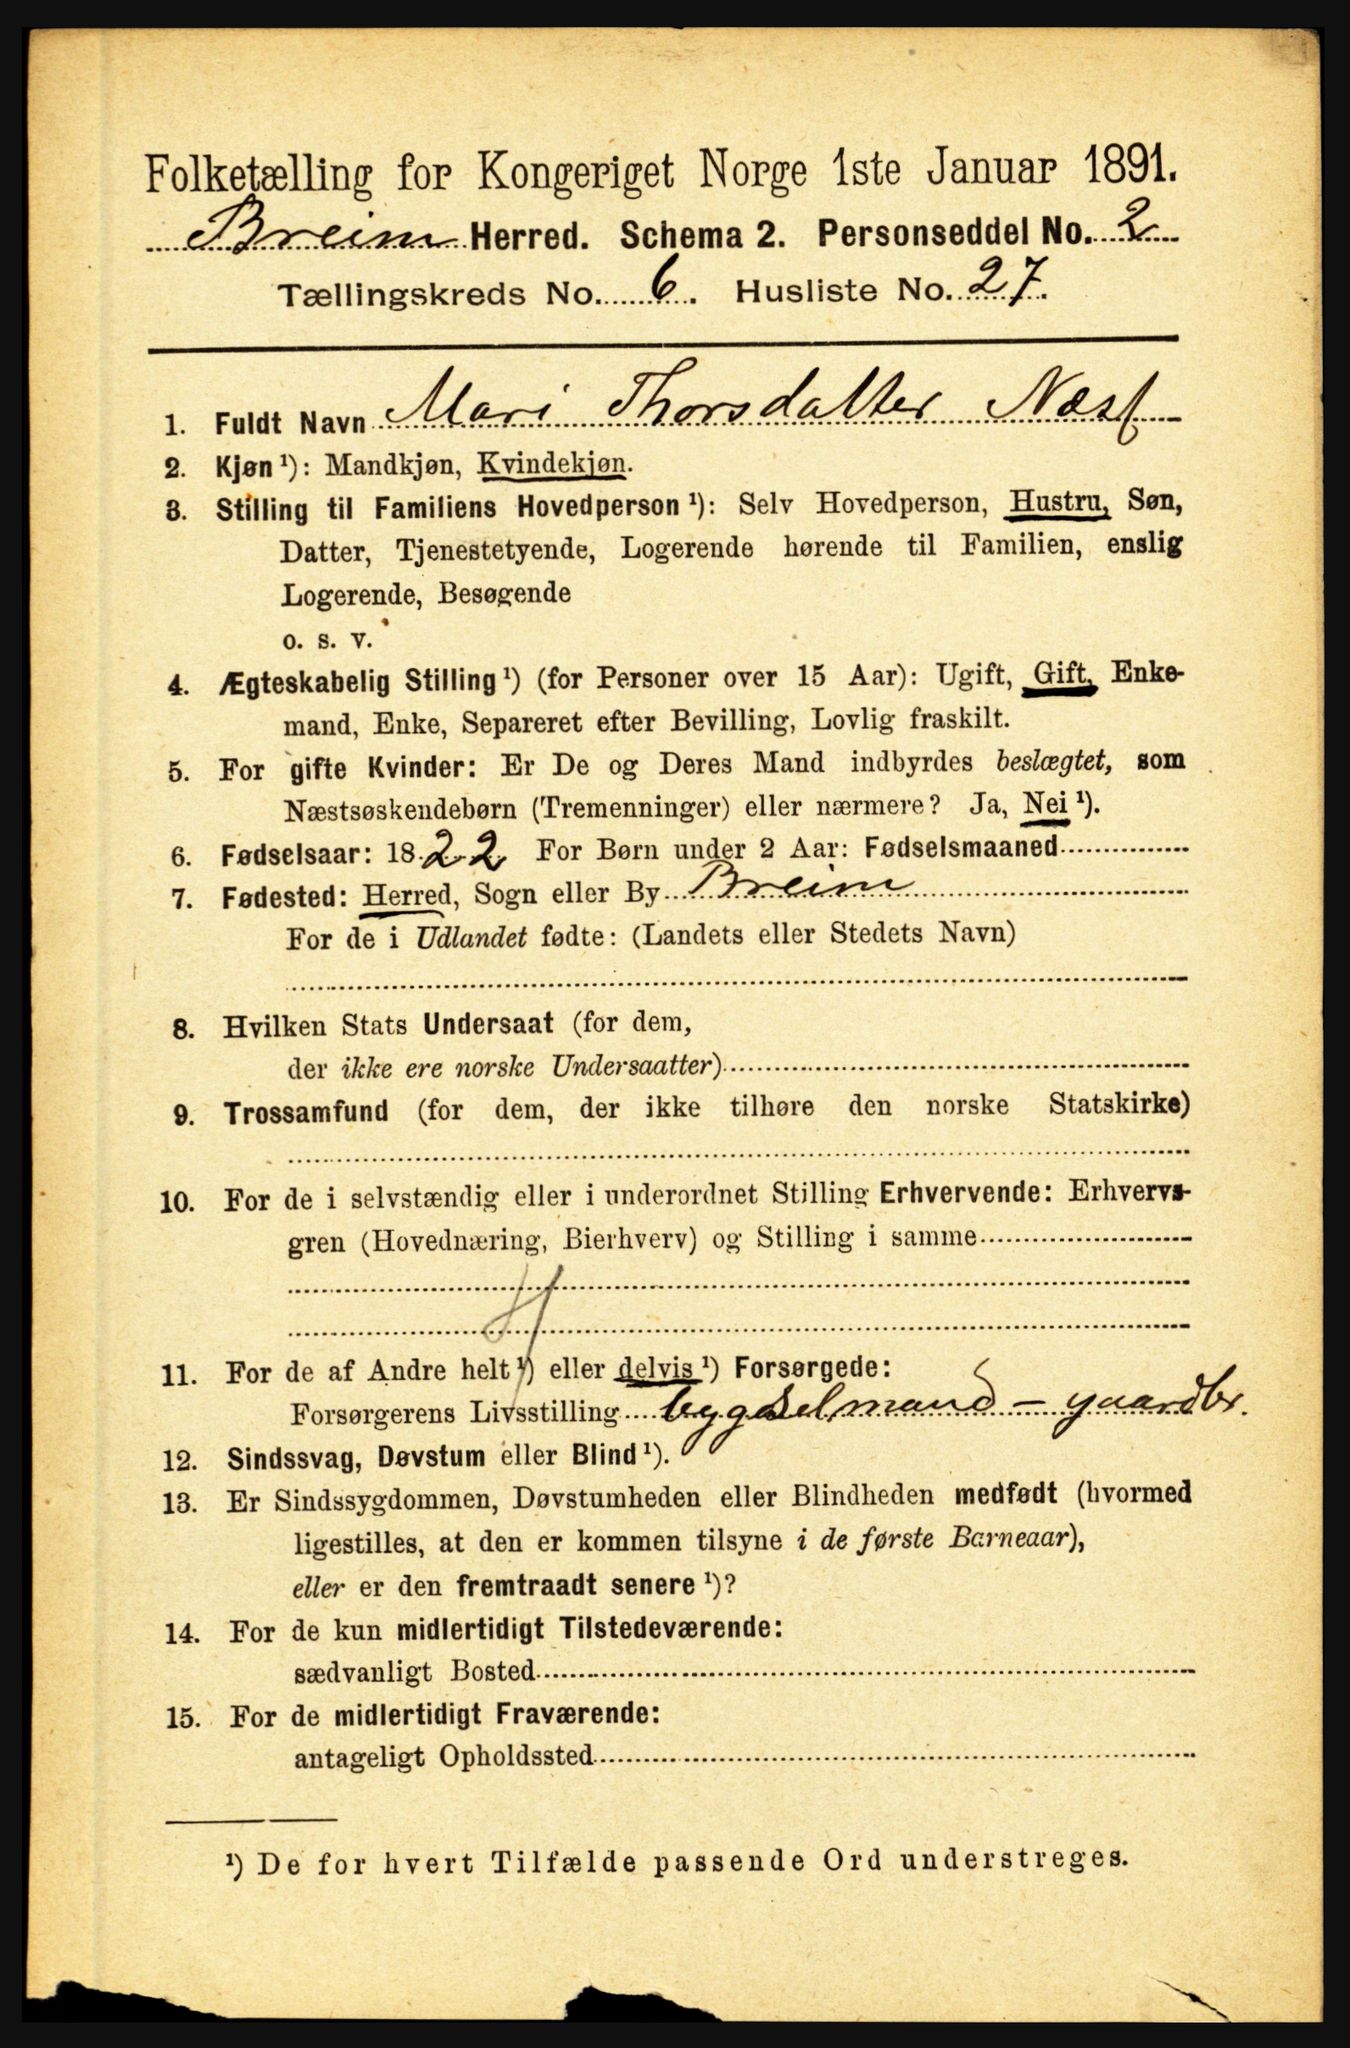 Folketælling for Kongeriget Norge 1ste Januar 1891.
Breim Herred. Schema 2. Personseddel No. 2
Tællingskreds No. 6. Husliste No. 27.
1. Fuldt Navn Mari Thorsdatter Næss
2. Kjøn ¹): Mandkjøn, Kvindekjøn.
3. Stilling til Familiens Hovedperson ¹): Selv Hovedperson, Hustru, Søn,
Datter, Tjenestetyende, Logerende hørende til Familien, enslig
Logerende, Besøgende
o. s. v.
4. Ægteskabelig Stilling ¹) (for Personer over 15 Aar): Ugift, Gift, Enke-
mand, Enke, Separeret efter Bevilling, Lovlig fraskilt.
5. For gifte Kvinder: Er De og Deres Mand indbyrdes beslægtet, som
Næstsøskendebørn (Tremenninger) eller nærmere? Ja, Nei ¹).
6. Fødselsaar: 1822 For Børn under 2 Aar: Fødselsmaaned
7. Fødested: Herred, Sogn eller By Breim
For de i Udlandet fødte: (Landets eller Stedets Navn)
8. Hvilken Stats Undersaat (for dem,
der ikke ere norske Undersaatter)
9. Trossamfund (for dem, der ikke tilhøre den norske Statskirke)
10. For de i selvstændig eller i underordnet Stilling Erhvervende: Erhvervs-
gren (Hovednæring, Bierhverv) og Stilling i samme
11. For de af Andre helt ¹) eller delvis ¹) Forsørgede:
Forsørgerens Livsstilling bygselmand – gaardbr.
12. Sindssvag, Døvstum eller Blind ¹).
13. Er Sindssygdommen, Døvstumheden eller Blindheden medfødt (hvormed
ligestilles, at den er kommen tilsyne i de første Barneaar),
eller er den fremtraadt senere ¹)?
14. For de kun midlertidigt Tilstedeværende:
sædvanligt Bosted
15. For de midlertidigt Fraværende:
antageligt Opholdssted
¹) De for hvert Tilfælde passende Ord understreges.